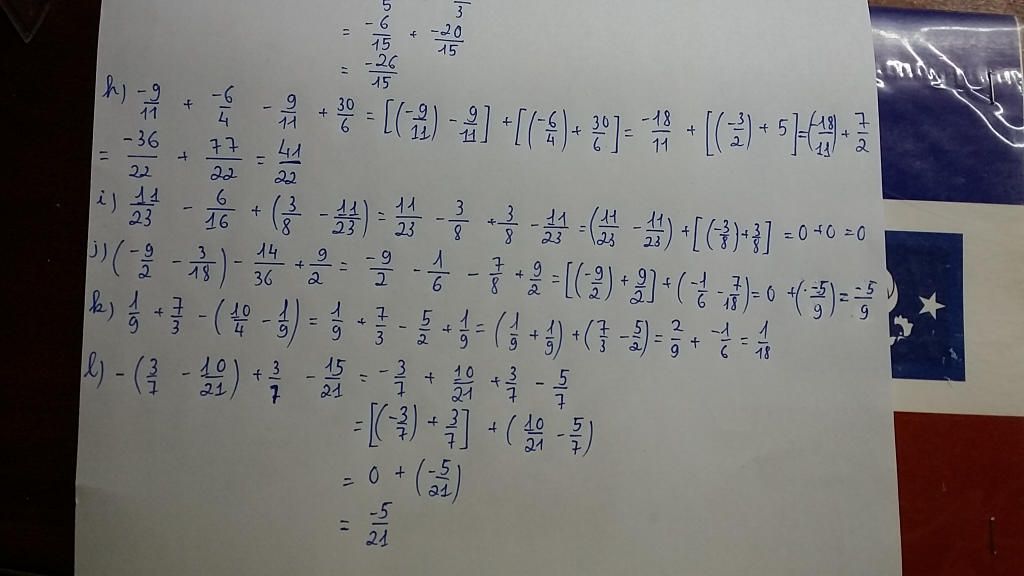 5 3
= -6/15 + -20/15
= -26/15
h) -9/11 + -6/4 - 9/11 + 30/6 = [(-9/11) - 9/11] + [(-6/4) + 30/6] = -18/11 + [(-3/2) + 5] = (-18/11) + 7/2
= -36/22 + 77/22 = 41/22
i) 11/23 - 6/16 + (3/8 - 11/23) = 11/23 - 3/8 + 3/8 - 11/23 = (11/23 - 11/23) + [(-3/8) + 3/8] = 0 + 0 = 0
j) (-9/2 - 3/18) - 14/36 + 9/2 = -9/2 - 1/6 - 7/8 + 9/2 = [(-9/2) + 9/2] + (-1/6 - 7/18) = 0 + (-5/9) = -5/9
k) 1/9 + 7/3 - (10/4 - 1/9) = 1/9 + 7/3 - 5/2 + 1/9 = (1/9 + 1/9) + (7/3 - 5/2) = 2/9 + -1/6 = 1/18
l) - (3/7 - 10/21) + 3/7 - 15/21 = -3/7 + 10/21 + 3/7 - 5/7
= [(-3/7) + 3/7] + (10/21 - 5/7)
= 0 + (-5/21)
= -5/21